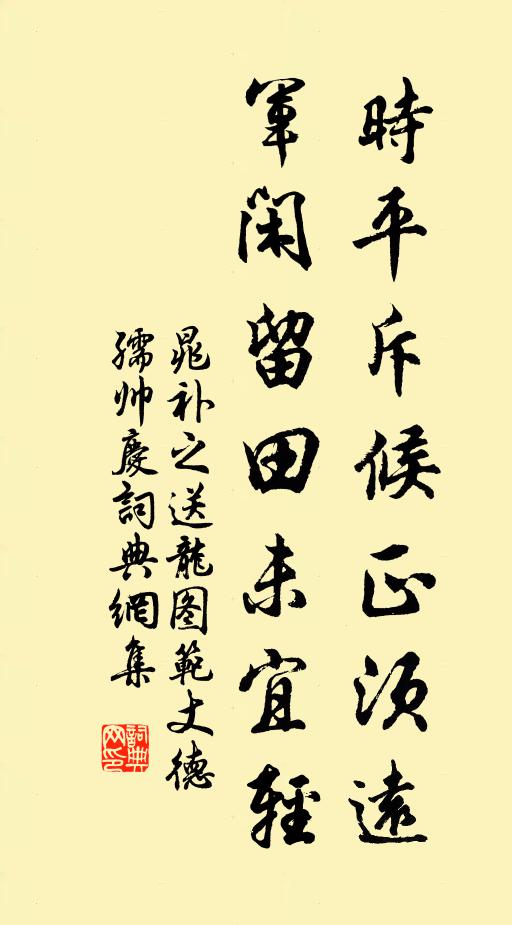 時平斥候正須遠
軍閑留田未宜輕
晁补之送龍图範丈德
孺帅慶詞典網集
詞典网印